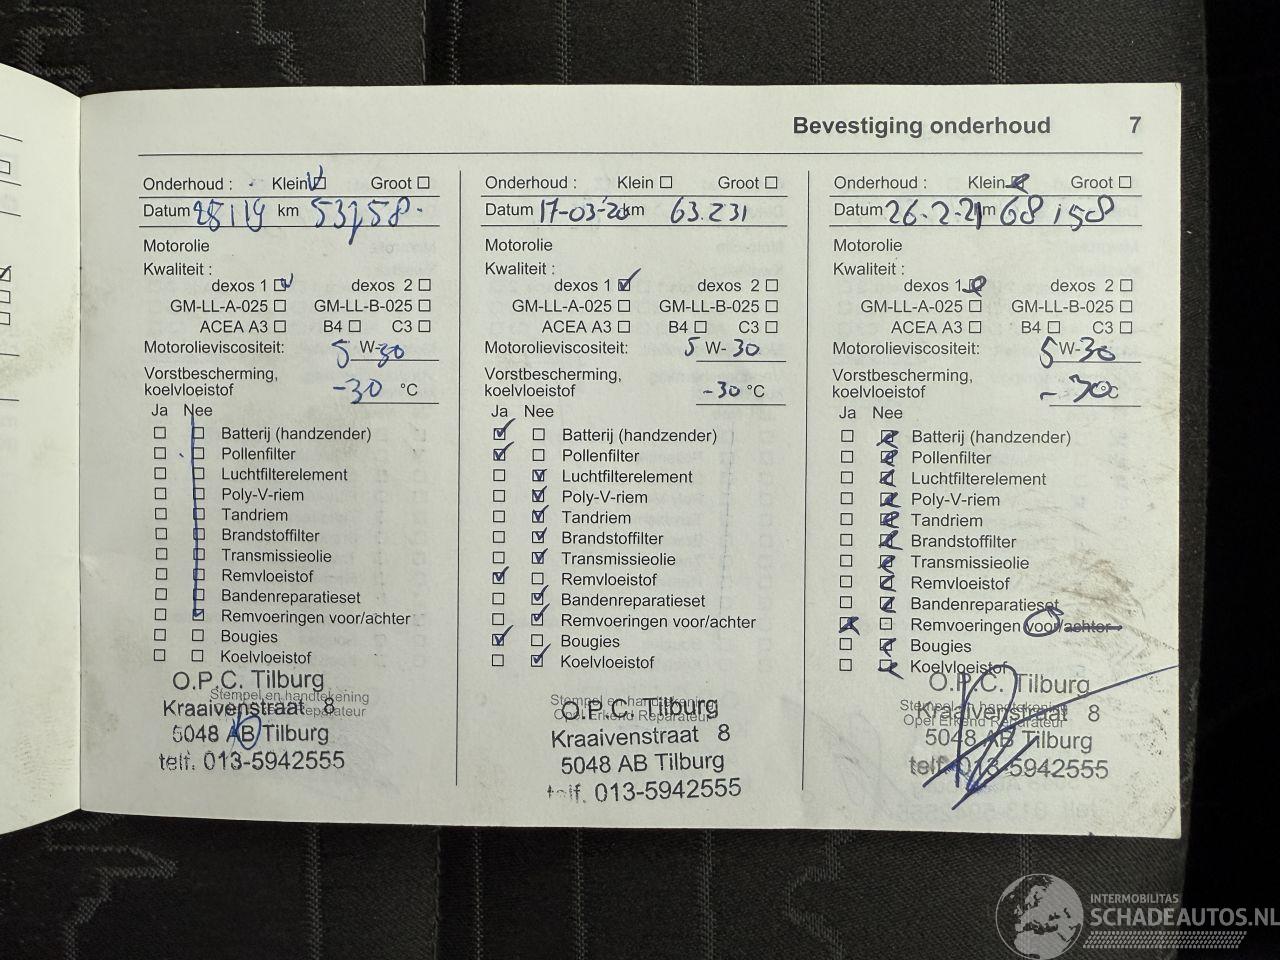 Bevestiging onderhoud 7
Onderhoud : Klein Groot
Datum km 53158
Motorolie
Kwaliteit :
dexos 1 dexos 2
GM-LL-A-025 GM-LL-B-025
ACEA A3 B4 C3
Motorolieviscositeit: 5 W-30
Vorstbescherming,
koelvloeistof -30 °C
Ja Nee
Batterij (handzender)
Pollenfilter
Luchtfilterelement
Poly-V-riem
Tandriem
Brandstoffilter
Transmissieolie
Remvloeistof
Bandenreparatieset
Remvoeringen voor/achter
Bougies
Koelvloeistof
Stempel en handtekening
Opel Erkend Reparateur
O.P.C. Tilburg
Kraaivenstraat 8
5048 AB Tilburg
telf. 013-5942555
Onderhoud : Klein Groot
Datum 17-03-20 km 63.231
Motorolie
Kwaliteit :
dexos 1 dexos 2
GM-LL-A-025 GM-LL-B-025
ACEA A3 B4 C3
Motorolieviscositeit: 5 W- 30
Vorstbescherming,
koelvloeistof -30 °C
Ja Nee
Batterij (handzender)
Pollenfilter
Luchtfilterelement
Poly-V-riem
Tandriem
Brandstoffilter
Transmissieolie
Remvloeistof
Bandenreparatieset
Remvoeringen voor/achter
Bougies
Koelvloeistof
Stempel en handtekening
Opel Erkend Reparateur
O.P.C. Tilburg
Kraaivenstraat 8
5048 AB Tilburg
telf. 013-5942555
Onderhoud : Klein Groot
Datum 26-2-21 km 68158
Motorolie
Kwaliteit :
dexos 1 dexos 2
GM-LL-A-025 GM-LL-B-025
ACEA A3 B4 C3
Motorolieviscositeit: 5 W-30
Vorstbescherming,
koelvloeistof -30 °C
Ja Nee
Batterij (handzender)
Pollenfilter
Luchtfilterelement
Poly-V-riem
Tandriem
Brandstoffilter
Transmissieolie
Remvloeistof
Bandenreparatieset
Remvoeringen voor/achter
Bougies
Koelvloeistof
Stempel en handtekening
Opel Erkend Reparateur
O.P.C. Tilburg
Kraaivenstraat 8
5048 AB Tilburg
telf. 013-5942555
INTERMOBILITAS
SCHADEAUTOS.NL